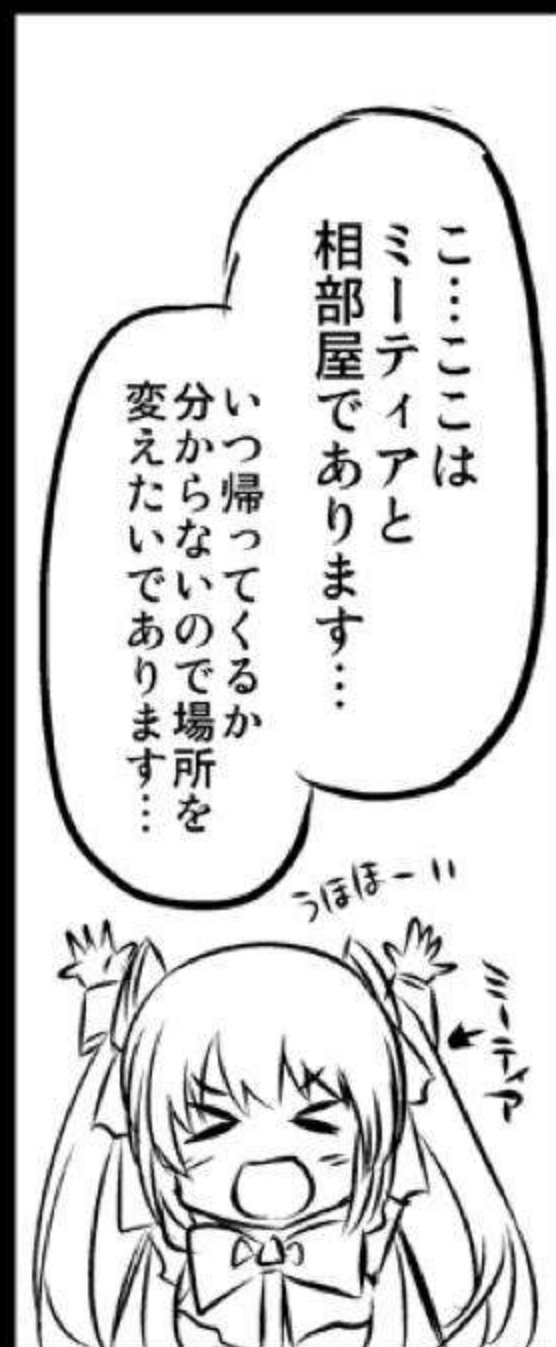 こ…ここは
ミーティアと
相部屋であります…
いつ帰ってくるか
分からないので場所を
変えたいであります…
うほほーい
ミーティア